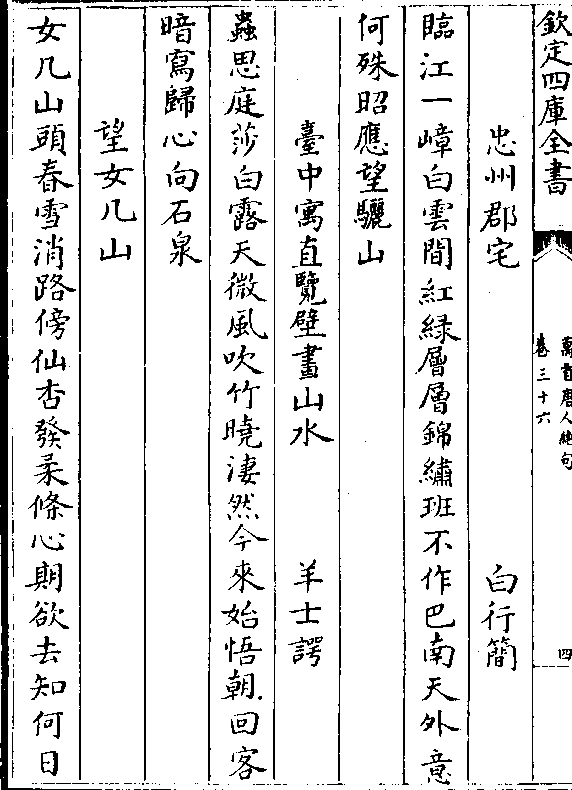 欽定四庫全書
萬首唐人絶句
卷三十六
四
忠州郡宅 白行簡
臨江一嶂白雲間紅緑層層錦繡班不作巴南天外意
何殊昭應望驪山
臺中寓直覽壁畫山水 羊士諤
蟲思庭莎白露天微風吹竹曉淒然今來始悟朝回客
暗寫歸心向石泉
望女几山
女几山頭春雪消路傍仙杏發柔條心期欲去知何日